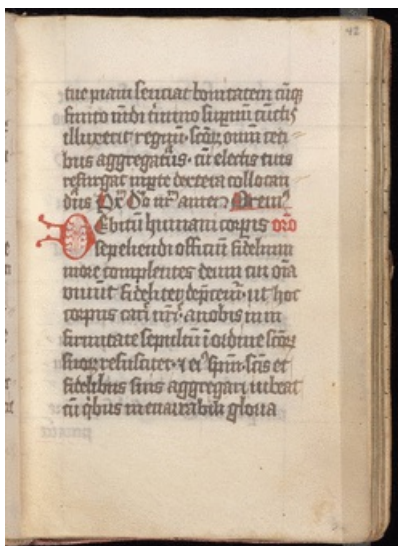 42
tue piam senciat bonitatem cūq
finito mūdi t'mino supnū cūctis
illuxerit regnū · scōꝝ oīm ceti
bus aggregatus · cū electis tuis
resurgat in pte dextera collocan
dus P xp̄m dn̄m nr̄m amen Prem9
Debitū humani corpis orō
sepeliendi officiū fidelium
more complentes deum cui oīa
viuūt fidelit dep̄cem² · ut hoc
corpus cari nr̄i · a nobis in in
firmitate sepultū ī ordine scōꝝ
suoꝝ resuscitet · ⁊ ei⁹ sp̄m · scīs et
fidelibus suis aggregari iubeat
cū qͥbus inenarrabili gloria